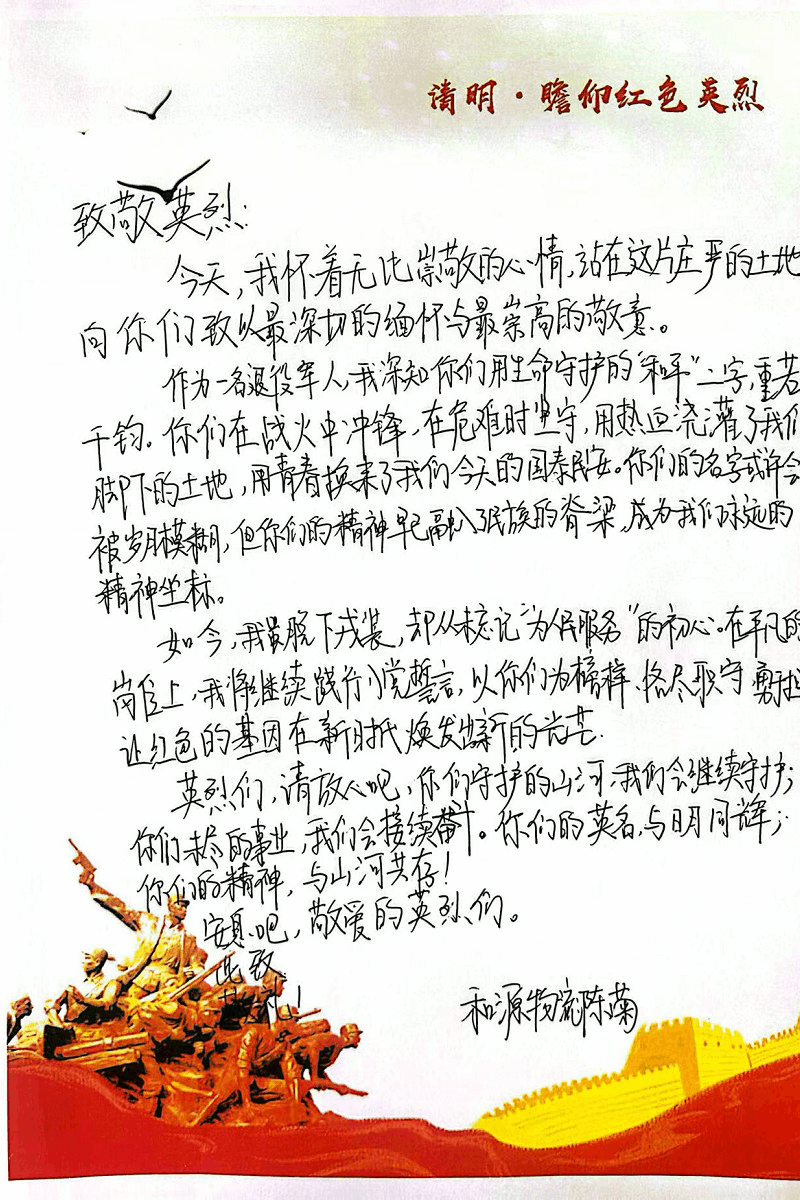 清明·瞻仰红色英烈
致敬英烈:
今天,我怀着无比崇敬的心情,站在这片庄严的土地
向你们致以最深切的缅怀与最崇高的敬意。
作为一名退役军人,我深知你们用生命守护的"和平"二字,重若
千钧。你们在战火中冲锋,在危难时坚守,用热血浇灌了我们
脚下的土地,用青春换来了我们今天的国泰民安。你们的名字或许会
被岁月模糊,但你们的精神早已融入了民族的脊梁,成为我们永远的
精神坐标。
如今,我虽脱下戎装,却从未忘记"为人民服务"的初心。在平凡的
岗位上,我将继续践行入党誓言,以你们为榜样、恪尽职守、勇于
让红色的基因在新时代焕发出新的光芒.
英烈们,请放心吧,你们守护的山河,我们会继续守护;
你们未尽的事业,我们会接续奋斗。你们的英名,与日月同辉;
你们的精神,与山河共存!
安息吧,敬爱的英烈们。
此致
敬礼!
和源物流陈菊